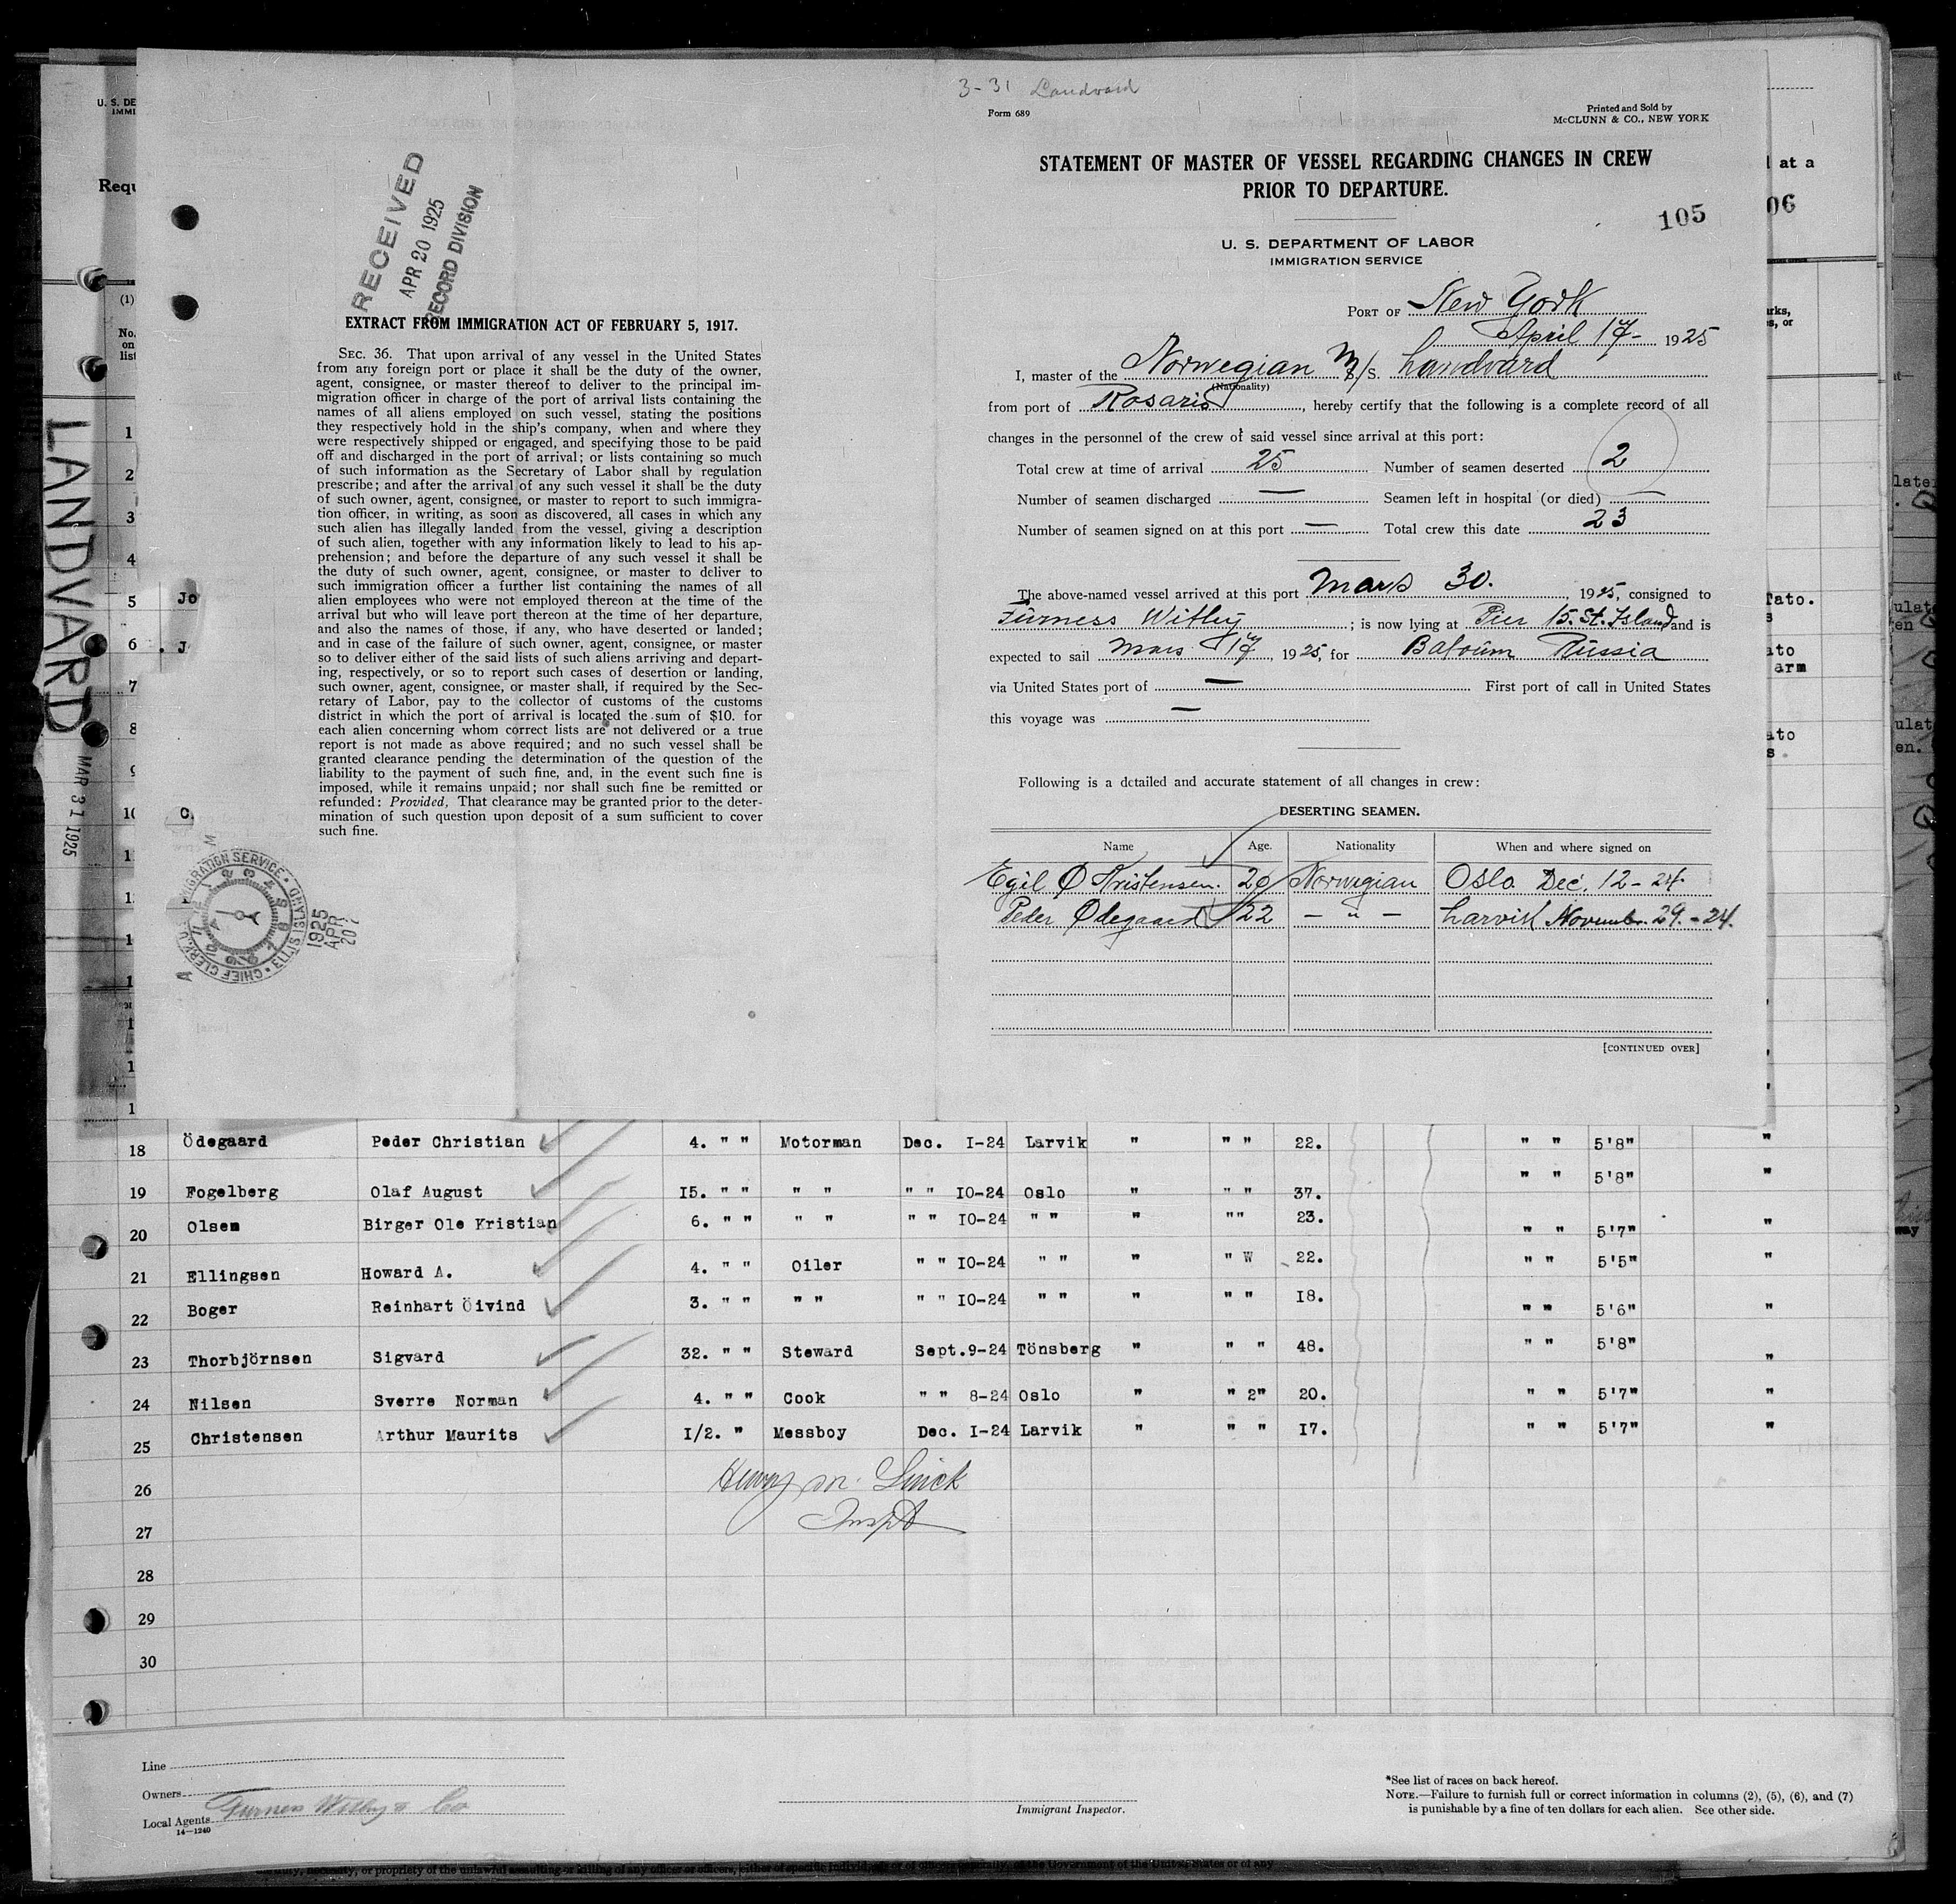 3-31 Landvard
Form 689
Printed and Sold by
McCLUNN & CO., NEW YORK
STATEMENT OF MASTER OF VESSEL REGARDING CHANGES IN CREW
PRIOR TO DEPARTURE.
105
U. S. DEPARTMENT OF LABOR
IMMIGRATION SERVICE
PORT OF New York
April 17- 1925
I, master of the Norwegian M/S. Landvard
(Nationality)
from port of Rosario, hereby certify that the following is a complete record of all
changes in the personnel of the crew of said vessel since arrival at this port:
Total crew at time of arrival 25 Number of seamen deserted 2
Number of seamen discharged — Seamen left in hospital (or died) —
Number of seamen signed on at this port — Total crew this date 23
The above-named vessel arrived at this port Mars 30. , 1925, consigned to
Furness Withy ; is now lying at Pier 15. St. Island and is
expected to sail Mars 17, 1925, for Batoum Russia
via United States port of — First port of call in United States
this voyage was —
Following is a detailed and accurate statement of all changes in crew:
DESERTING SEAMEN.
Name Age. Nationality When and where signed on
Egil Ø Kristensen. 20 Norwegian Oslo Dec. 12-24.
Peder Ødegaard 22 — " — Larvik Novemb. 29.-24.
[CONTINUED OVER]
RECEIVED
APR 20 1925
RECORD DIVISION
EXTRACT FROM IMMIGRATION ACT OF FEBRUARY 5, 1917.
SEC. 36. That upon arrival of any vessel in the United States
from any foreign port or place it shall be the duty of the owner,
agent, consignee, or master thereof to deliver to the principal im-
migration officer in charge of the port of arrival lists containing the
names of all aliens employed on such vessel, stating the positions
they respectively hold in the ship's company, when and where they
were respectively shipped or engaged, and specifying those to be paid
off and discharged in the port of arrival; or lists containing so much
of such information as the Secretary of Labor shall by regulation
prescribe; and after the arrival of any such vessel it shall be the duty
of such owner, agent, consignee, or master to report to such immigra-
tion officer, in writing, as soon as discovered, all cases in which any
such alien has illegally landed from the vessel, giving a description
of such alien, together with any information likely to lead to his ap-
prehension; and before the departure of any such vessel it shall be
the duty of such owner, agent, consignee, or master to deliver to
such immigration officer a further list containing the names of all
alien employees who were not employed thereon at the time of the
arrival but who will leave port thereon at the time of her departure,
and also the names of those, if any, who have deserted or landed;
and in case of the failure of such owner, agent, consignee, or master
so to deliver either of the said lists of such aliens arriving and depart-
ing, respectively, or so to report such cases of desertion or landing,
such owner, agent, consignee, or master shall, if required by the Sec-
retary of Labor, pay to the collector of customs of the customs
district in which the port of arrival is located the sum of $10. for
each alien concerning whom correct lists are not delivered or a true
report is not made as above required; and no such vessel shall be
granted clearance pending the determination of the question of the
liability to the payment of such fine, and, in the event such fine is
imposed, while it remains unpaid; nor shall such fine be remitted or
refunded: Provided, That clearance may be granted prior to the deter-
mination of such question upon deposit of a sum sufficient to cover
such fine.
LANDVARD
MAR 31 1925
1925
APR
20
18 Ödegaard Peder Christian 4. " " Motorman Dec. I-24 Larvik " " " 22. " " 5'8" "
19 Fogelberg Olaf August 15. " " " " " " IO-24 Oslo " " " 37. " " 5'8" "
20 Olsen Birger Ole Kristian 6. " " " " " " IO-24 " " " "" 23. " " 5'7" "
21 Ellingsen Howard A. 4. " " Oiler " " IO-24 " " " " W 22. " " 5'5" "
22 Boger Reinhart Öivind 3. " " " " " " IO-24 " " " " " I8. " " 5'6" "
23 Thorbjörnsen Sigvard 32. " " Steward Sept.9-24 Tönsberg " " " 48. " " 5'8" "
24 Nilsen Sverre Norman 4. " " Cook " " 8-24 Oslo " " 2" 20. " " 5'7" "
25 Christensen Arthur Maurits I/2. " Messboy Dec. I-24 Larvik " " " I7. " " 5'7" "
26
27
28
29
30
Henry M. Linck
Inspt
Line
Owners
Local Agents Furness Withy & Co
14—1240
Immigrant Inspector.
*See list of races on back hereof.
NOTE.—Failure to furnish full or correct information in columns (2), (5), (6), and (7)
is punishable by a fine of ten dollars for each alien. See other side.